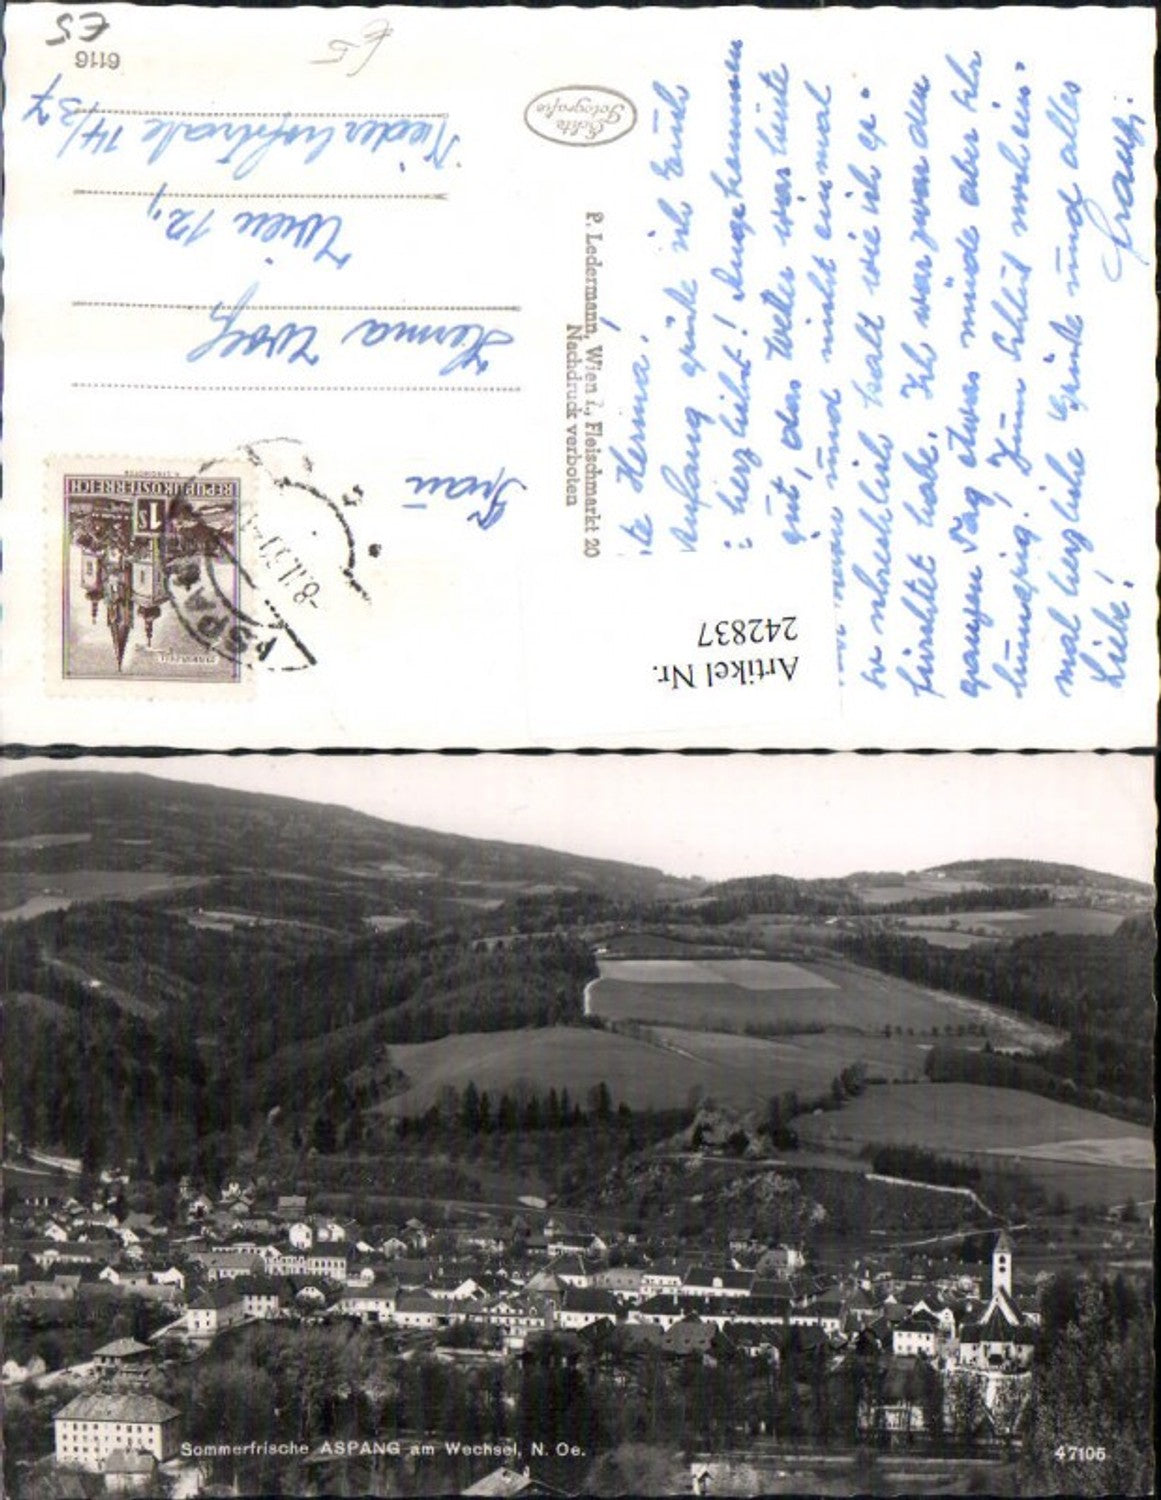 E5
6116
E5
Echte
Fotografie
P. Ledermann, Wien I., Fleischmarkt 20
Nachdruck verboten
Frau
Herma Wolf
Wien 12,
Niederhofstraße 14/37
REPUBLIK ÖSTERREICH
1S
ASPANG
-8.II.59
Artikel Nr.
242837
Herma!
Anfang grüße ich Euch
herzlichst! Angekommen
gut, das Wetter war heute
und nicht einmal
so schrecklich kalt wie ich ge-
fürchtet habe. Ich war zwar den
ganzen Tag etwas müde aber sehr
hungrig! Zum Schluß noch ein-
mal herzliche Grüße und alles
Liebe!
Sommerfrische ASPANG am Wechsel, N. Oe.
47105